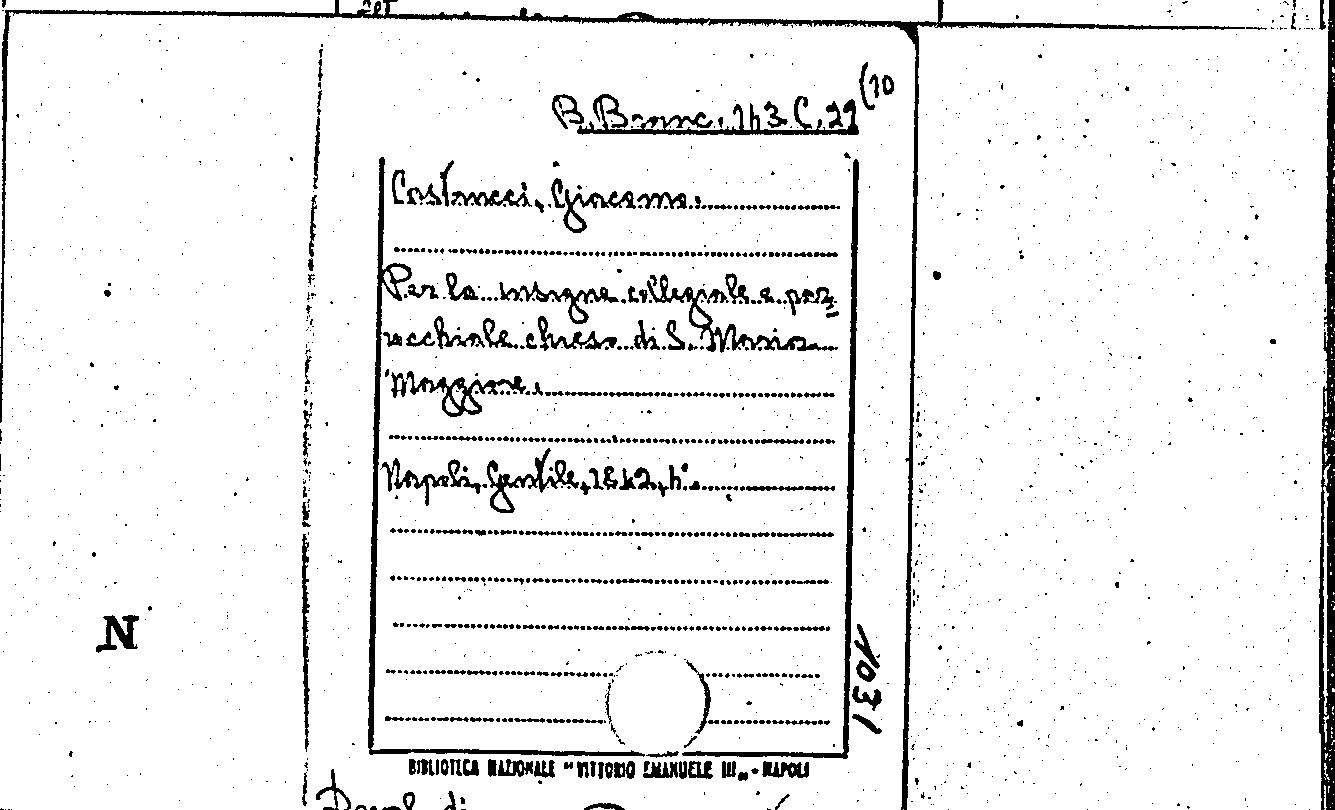 B. Branc. 143 C. 29 (10
Costanzi, Giacomo.
Per la insigne collegiale e par=
rocchiale chiesa di S. Maria
Maggiore.
Napoli, Gentile, 1842, 4°.
N
1031
BIBLIOTECA NAZIONALE "VITTORIO EMANUELE III" - NAPOLI